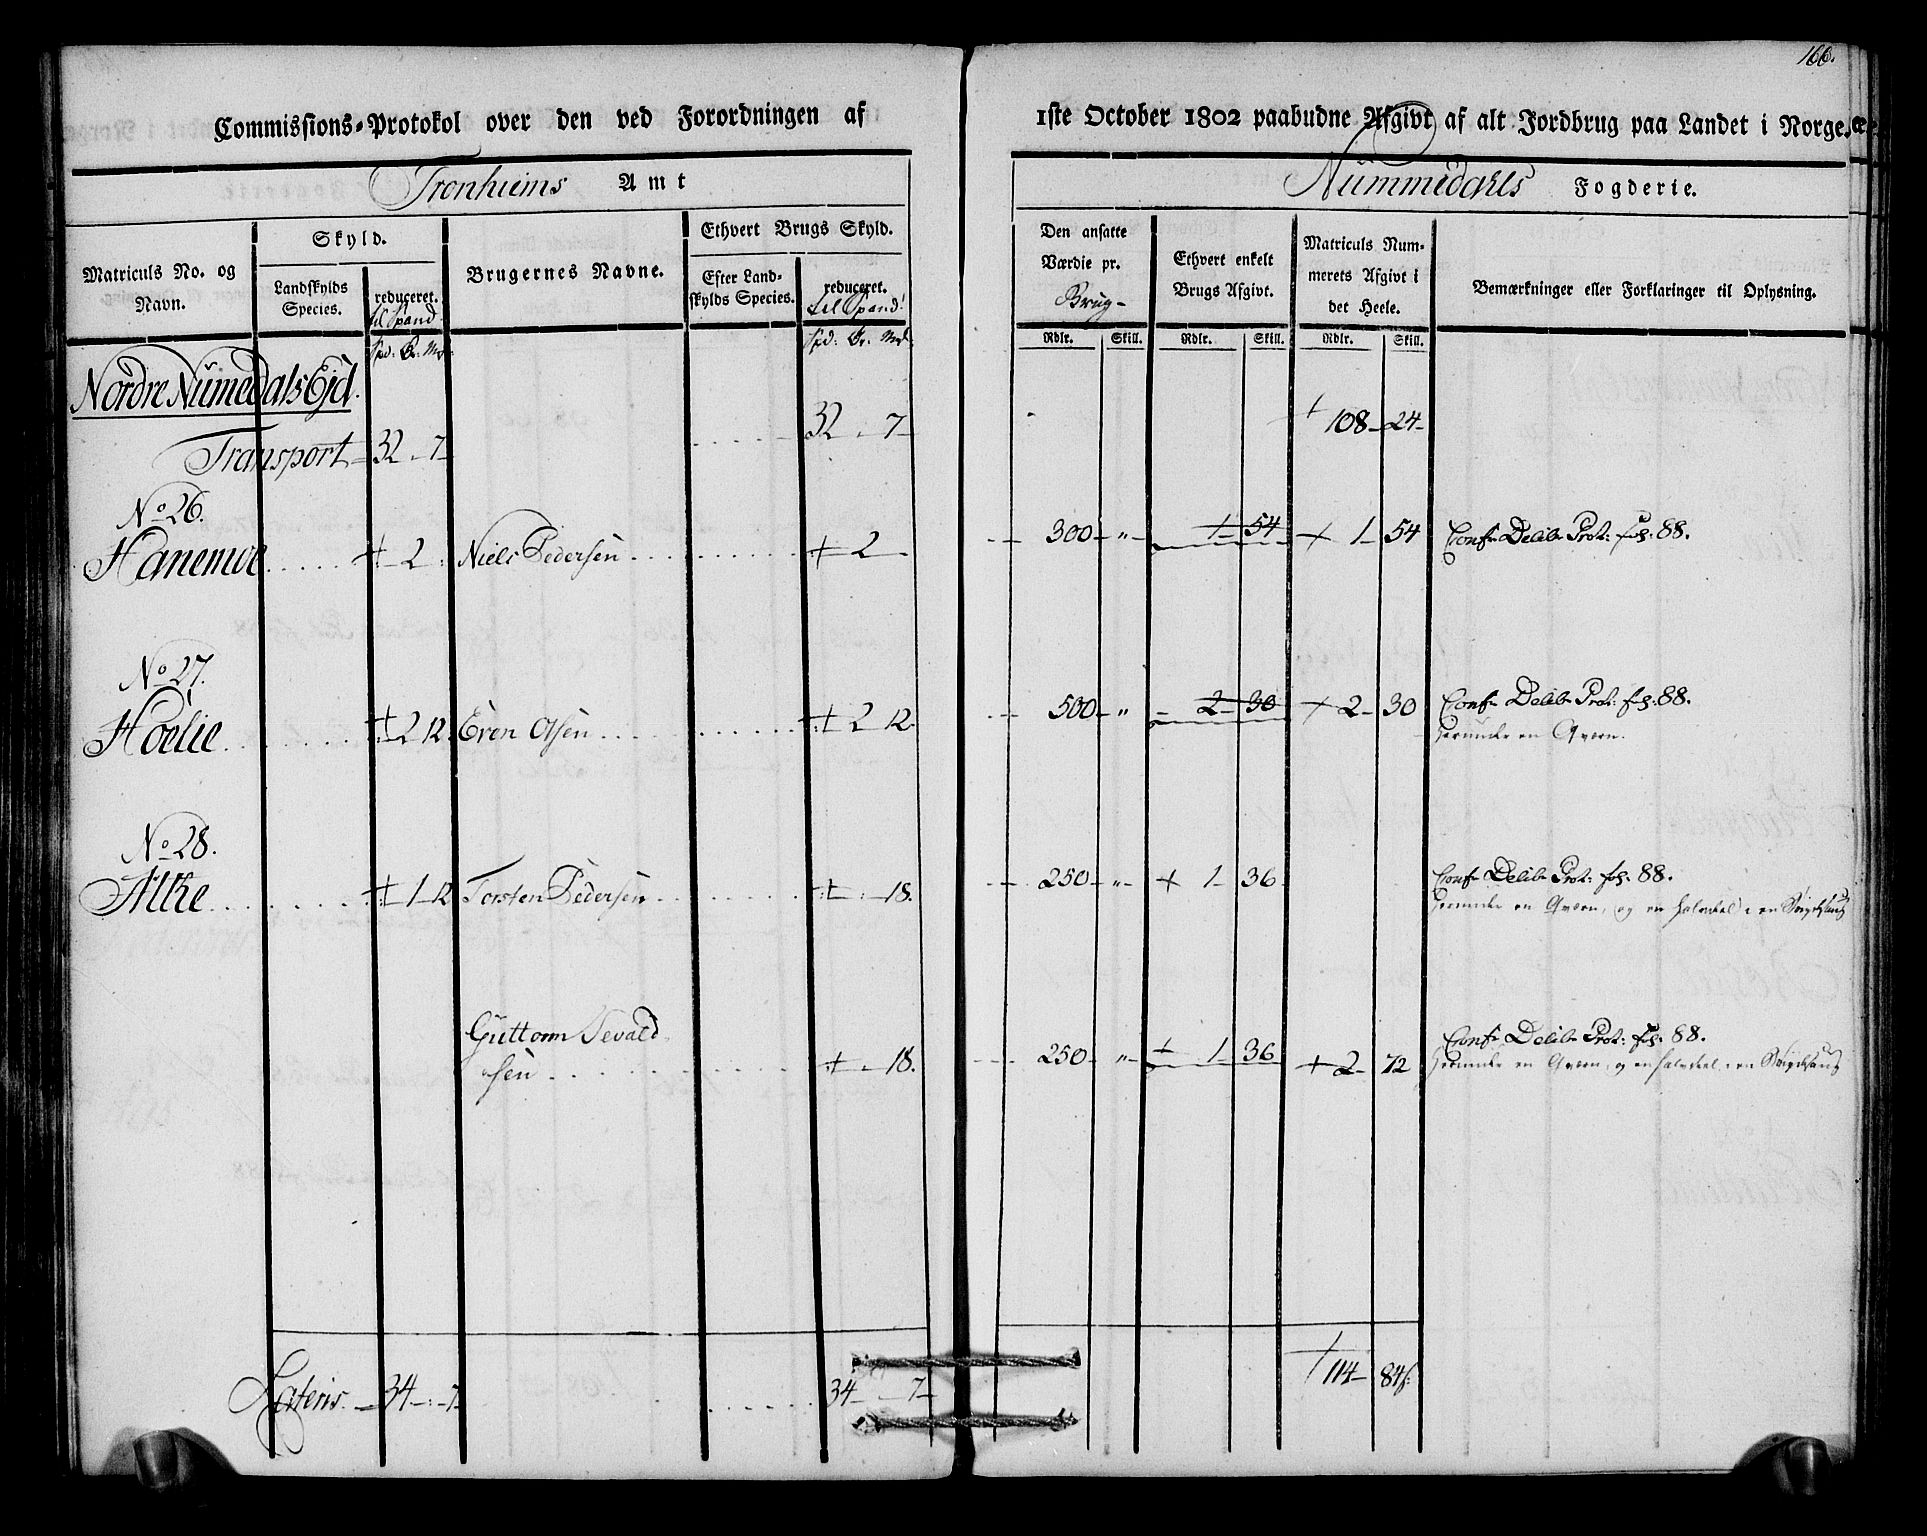 166.
Commissions-Protokol over den ved Forordningen af
1ste October 1802 paabudne Afgivt af alt Jordbrug paa Landet i Norge, ec.
Tronhiems Amt
Nummedahls Fogderie.
Matriculs No. og Navn.
Skyld.
Landskylds Species.
reduceret. til Spand
Spd: Ør. Mrk:
Brugernes Navne.
Ethvert Brugs Skyld.
Efter Landskylds Species.
reduceret. til Spand!
Spd: Ør. Mrk:
Den ansatte Værdie pr. Brug-
Rdlr. Skill.
Ethvert enkelt Brugs Afgivt.
Rdlr. Skill.
Matriculs Nummerets Afgivt i det Heele.
Rdlr. Skill.
Bemærkninger eller Forklaringer til Oplysning.
Nordre Nümedals Ejd.
Transport 32 . 7 32 . 7 108 24
No 26.
Hanemoe 2 Niels Pedersen 2 300 " 1 54 1 54 Conf Delib Prot: fol: 88.
No 27.
Hoelie 2 12 Even Olsen 2 12 500 " 2 30 2 30 Conf Delib Prot: fol: 88.
herunder en Qværn.
No 28.
1 12 Torsten Pedersen 18. 250 " 1 36 Conf Delib Prot: fol: 88.
herunder en Qværn, og en halvdeel i en
Guttorm Sevald
sen 18. 250 " 1 36 2 72 Conf Delib Prot: fol: 88.
herunder en Qværn, og en halvdeel i en
Lateris 34 : 7 34 7 114 84ſ.